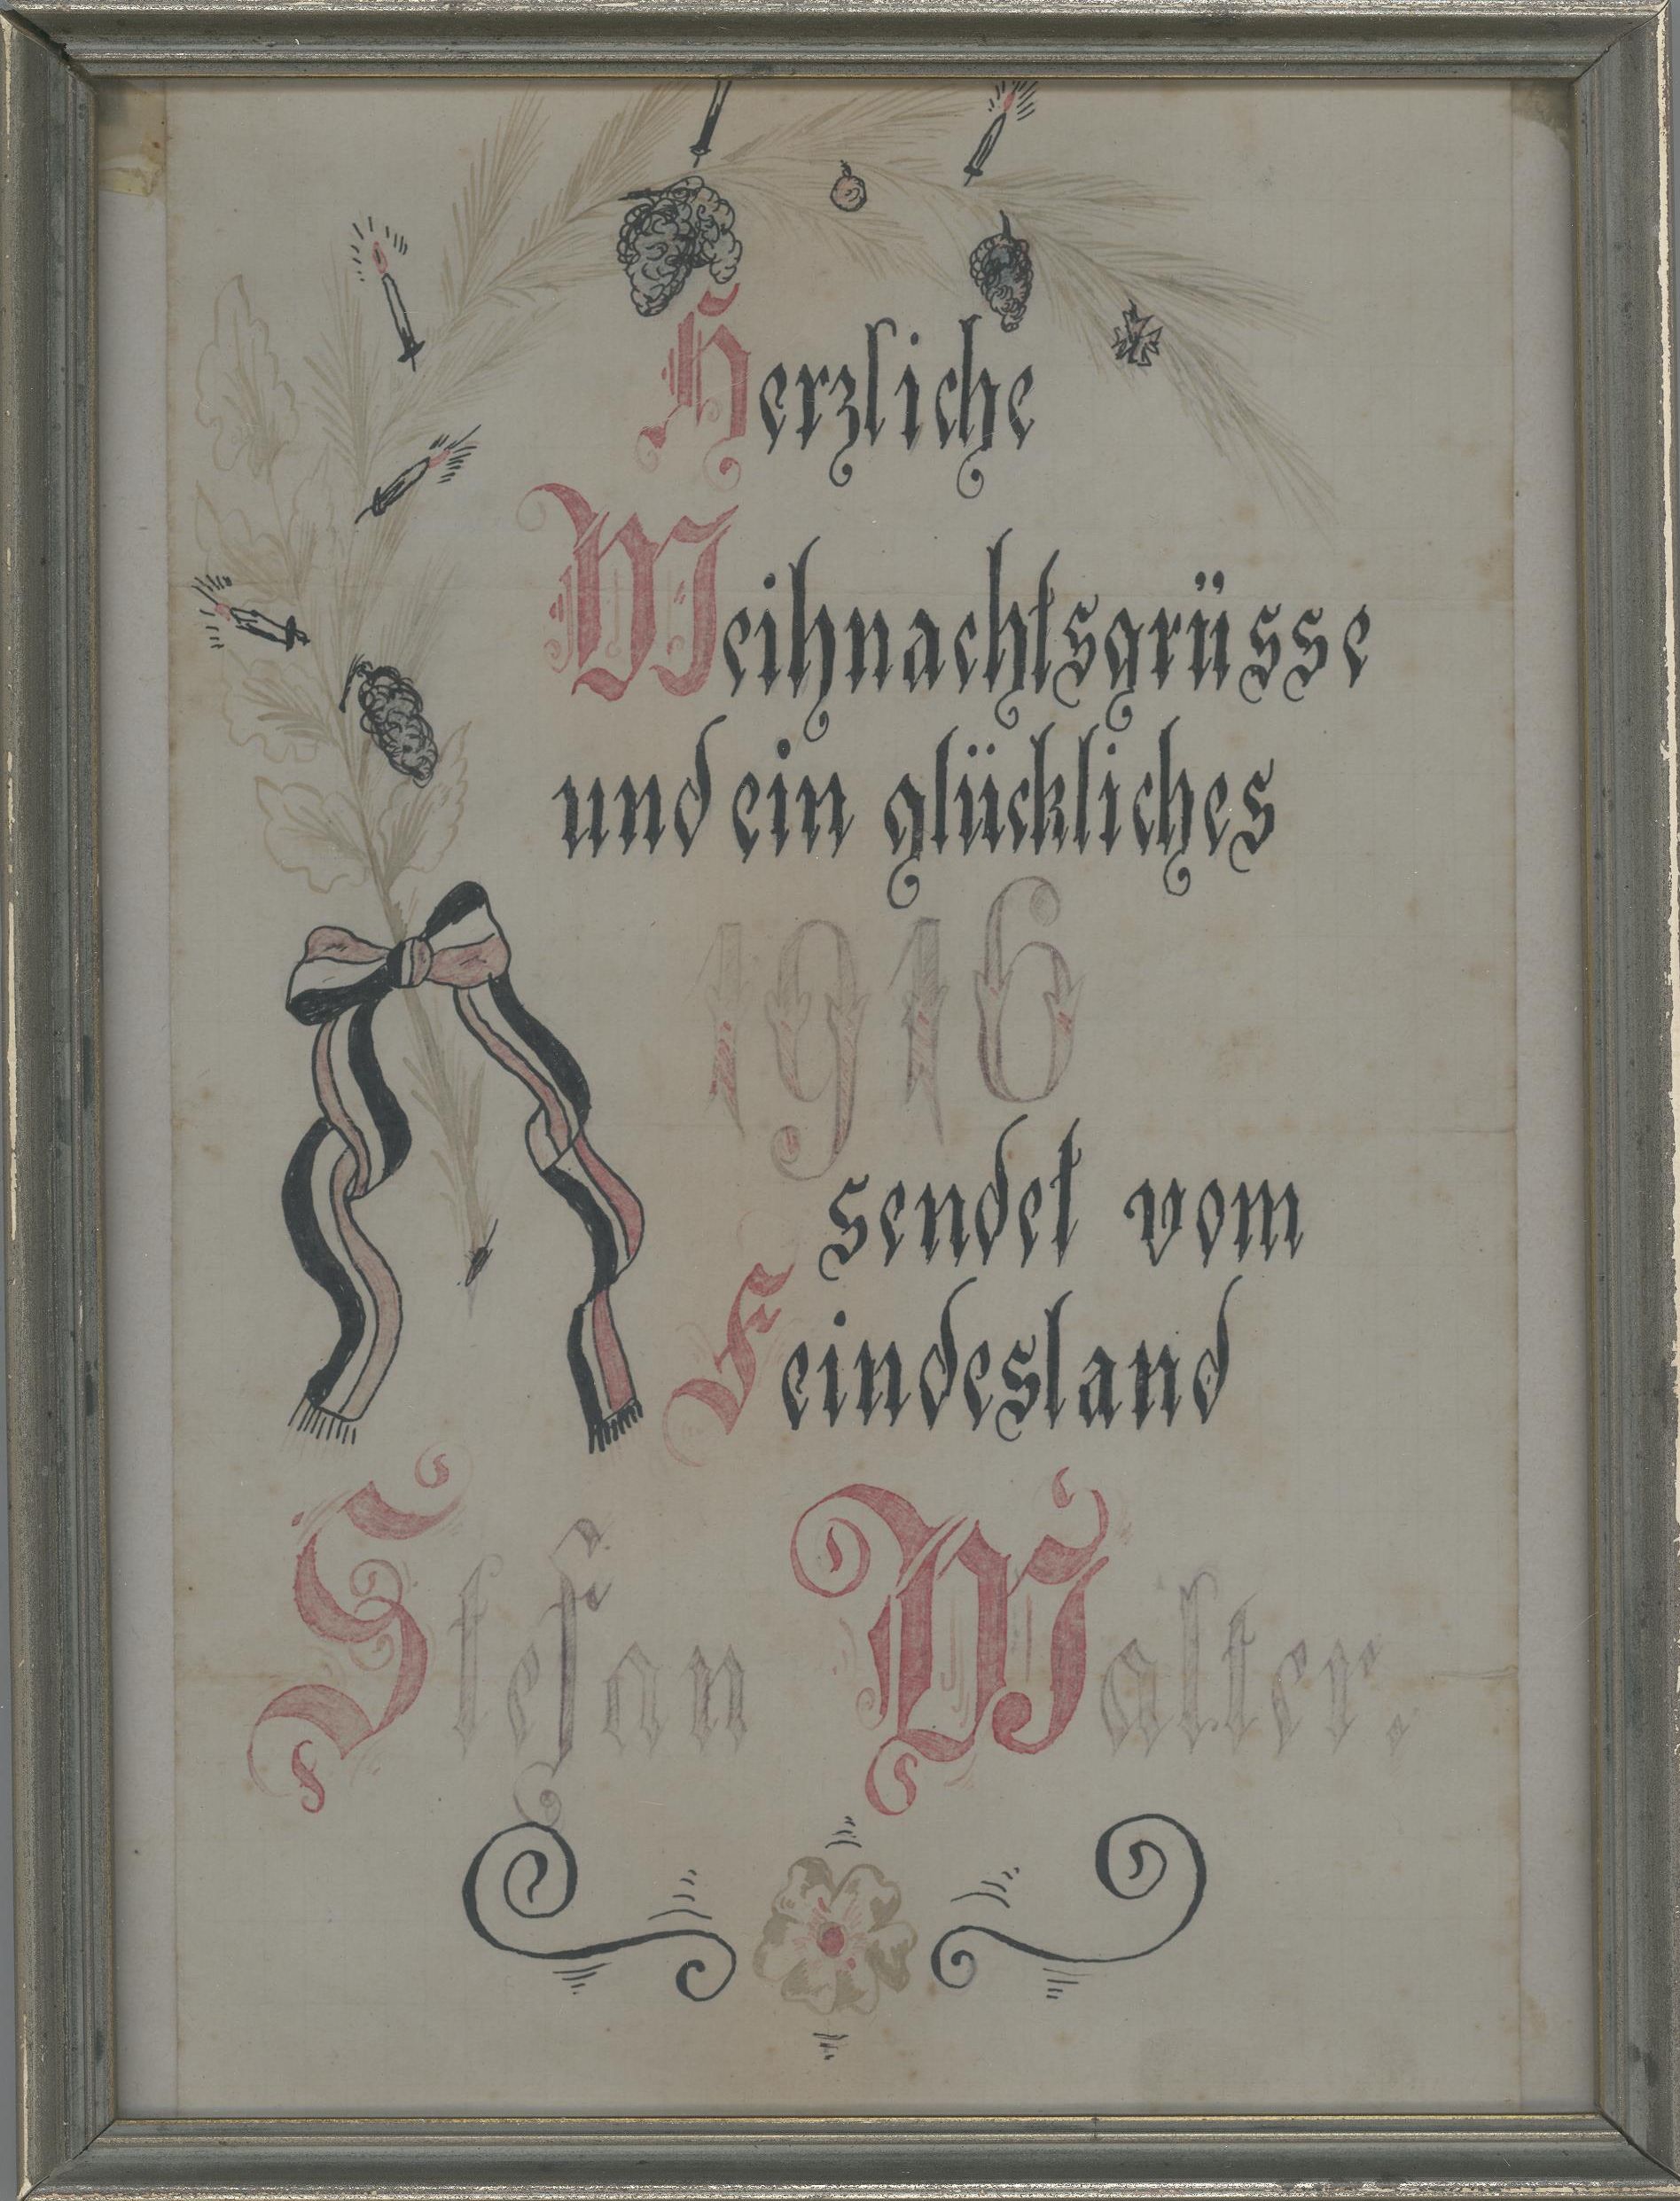 Herzliche
Weihnachtsgrüsse
und ein glückliches
1916
sendet vom
Feindesland
Stefan Walter.